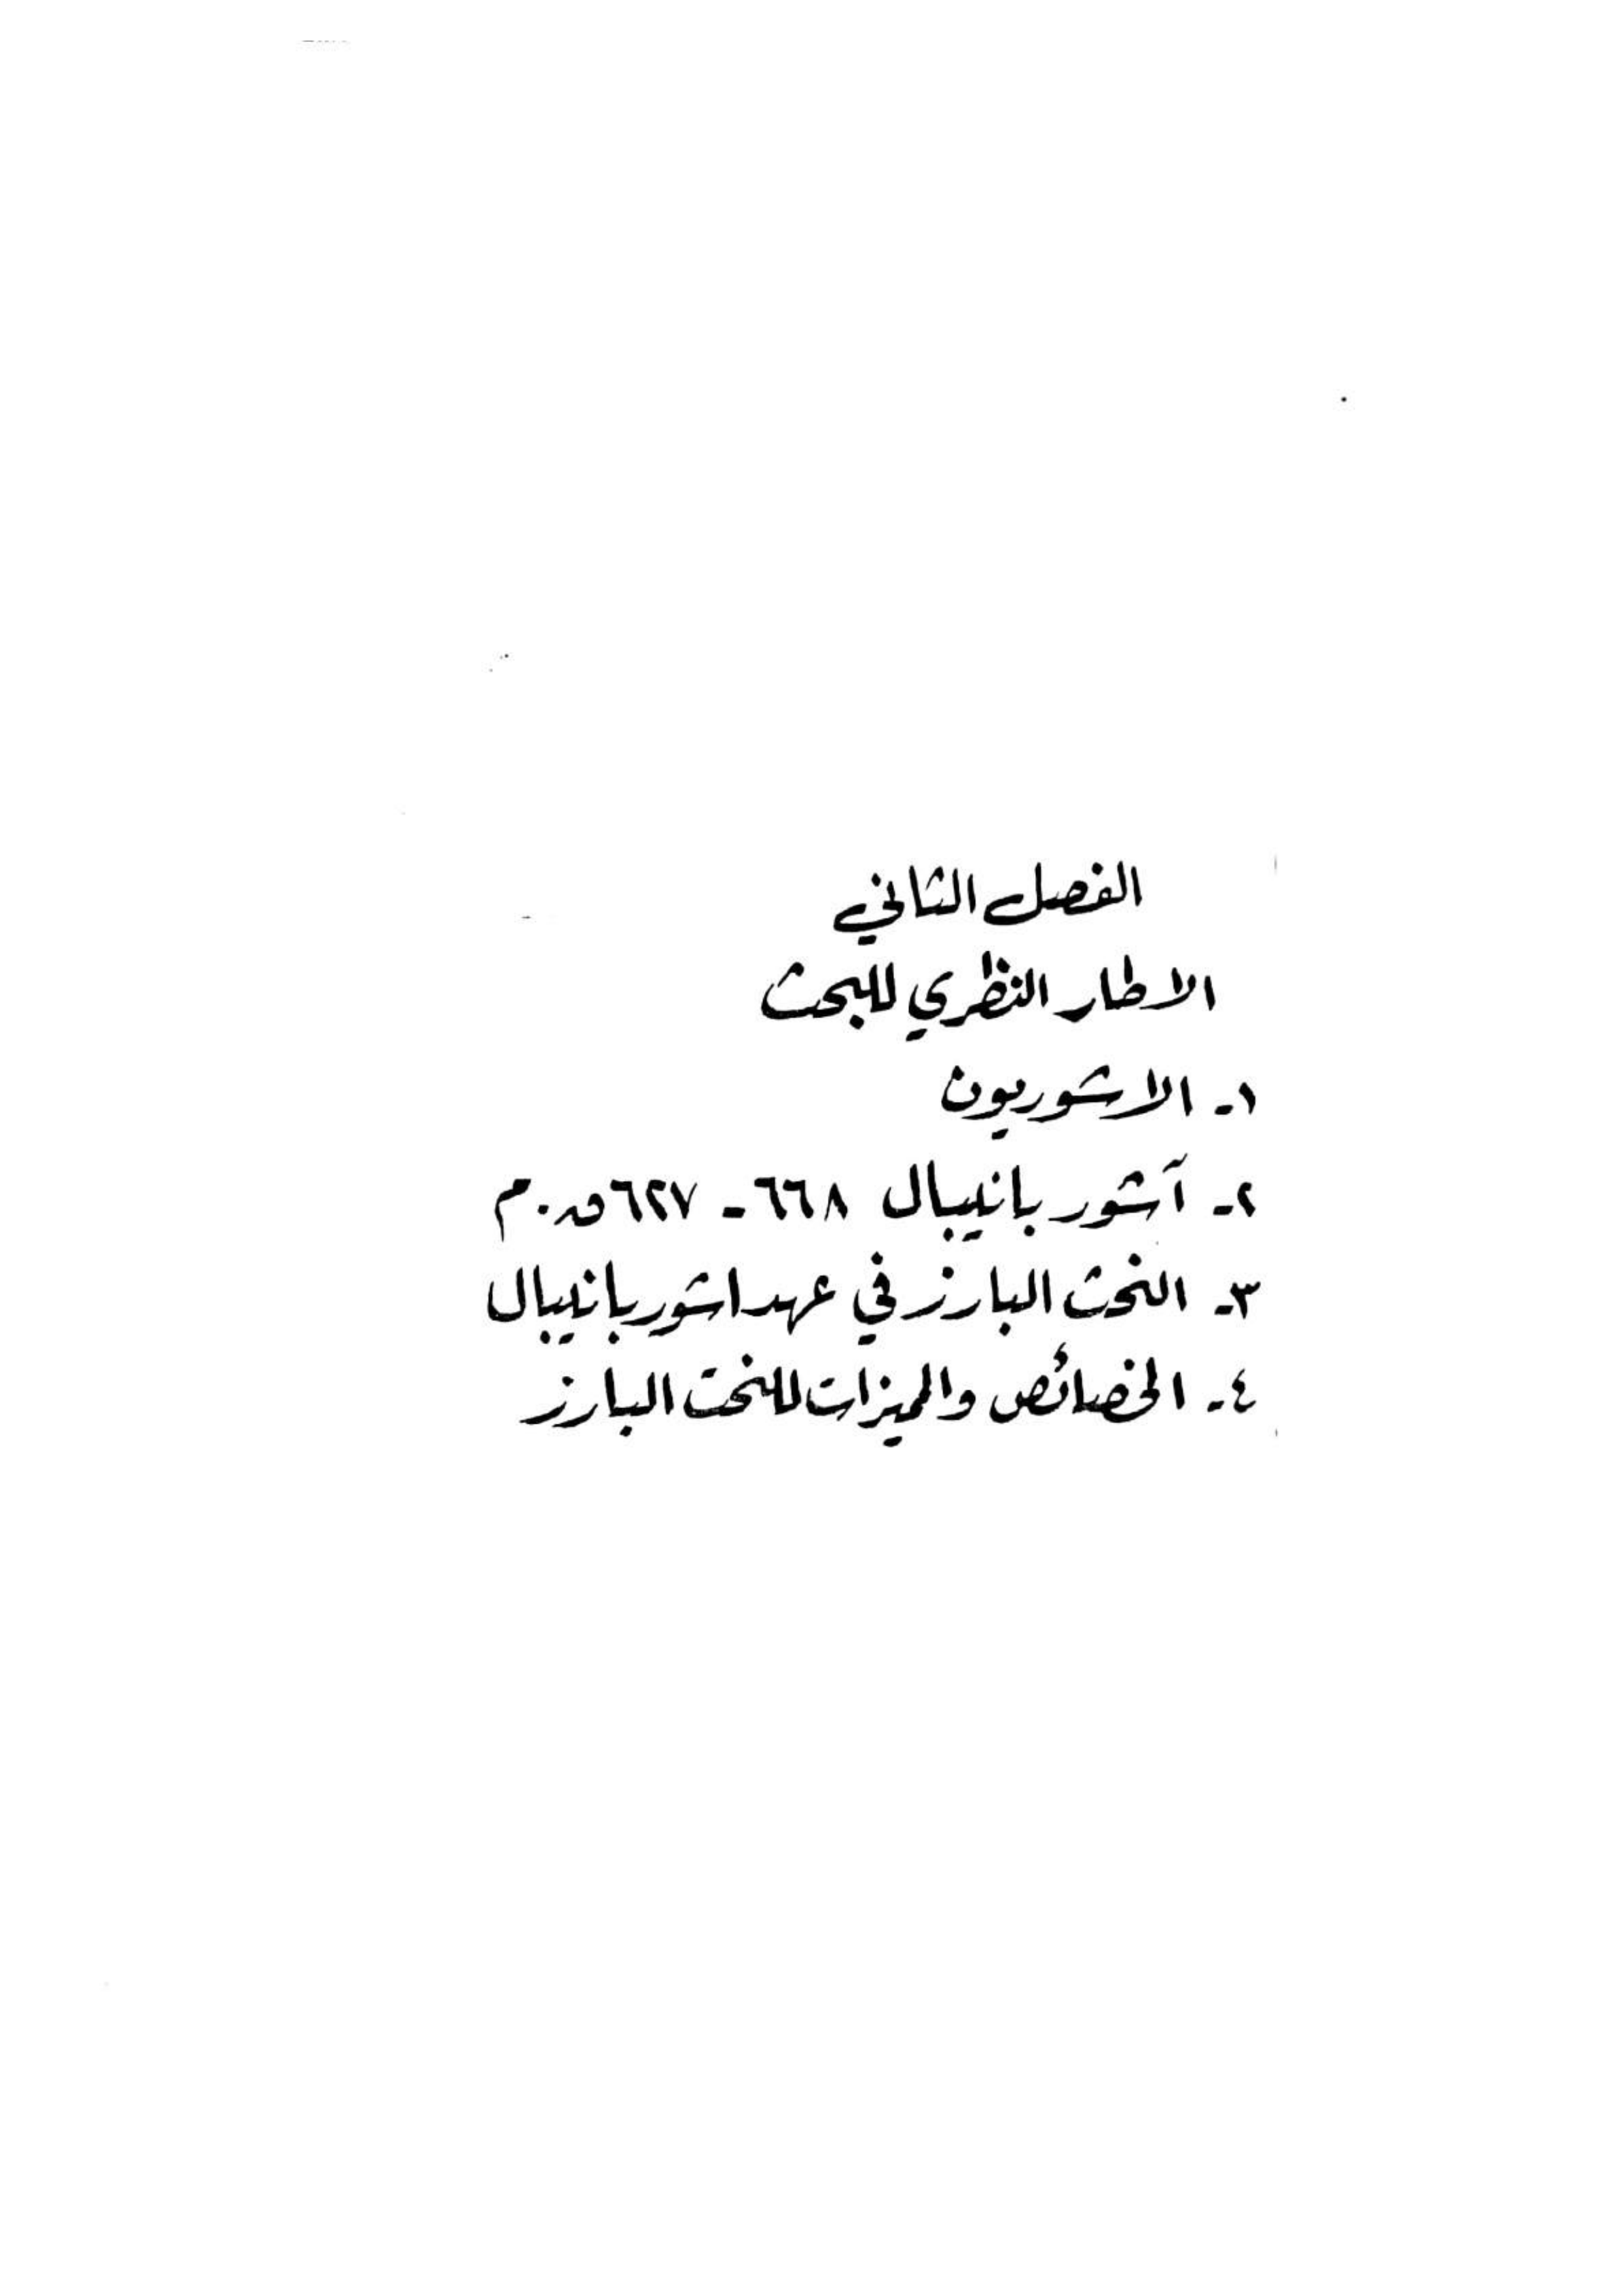 الفصل الثاني
الاطار النظري للبحث
١- الاشوريون
٢- آشور بانيبال ٦٦٨ - ٦٢٧ ق.م
٣- النحت البارز في عهد اشور بانيبال
٤- الخصائص والمميزات للنحت البارز